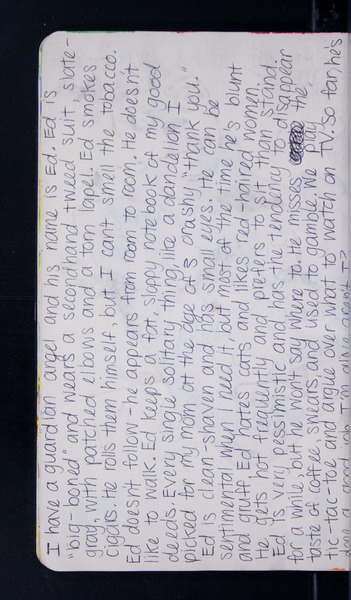 I have a guardian angel and his name is Ed. Ed is
"big-boned" and wears a secondhand tweed suit, slate-
gray, with patched elbows and a torn lapel. Ed smokes
cigars. He rolls them himself, but I can't smell the tobacco.
Ed doesn't follow - he appears from room to room. He doesn't
like to walk. Ed keeps a fat, sloppy notebook of my good
deeds. Every single solitary thing, like a dandelion I
picked for my mom at the age of 3 and "thank you."
Ed is clean-shaven and has small eyes. He can be
sentimental when I need it, but most of the time he's blunt
and gruff. Ed hates cats and likes red-haired women.
He gets hot frequently and prefers to sit than stand.
Ed is very pessimistic and has the tendency to disappear
for a while, but he won't say where to. He misses the
taste of coffee, swears and used to gamble. We play
tic-tac-toe and argue over what to watch on TV. So far, he's
done a good job. I'm alive aren't I?